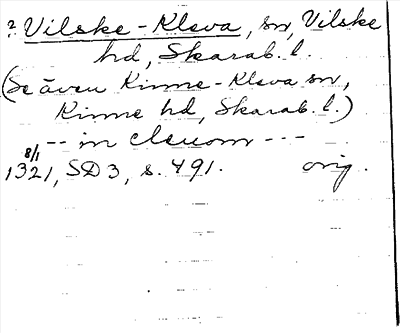 ? Vilske-Kleva, sn, Vilske
hd, Skarab. l.
(Se även Kinne-Kleva sn,
Kinne hd, Skarab. l.)
-- in cleuom ---
8/1
1321, SD 3, s. 491. orig.